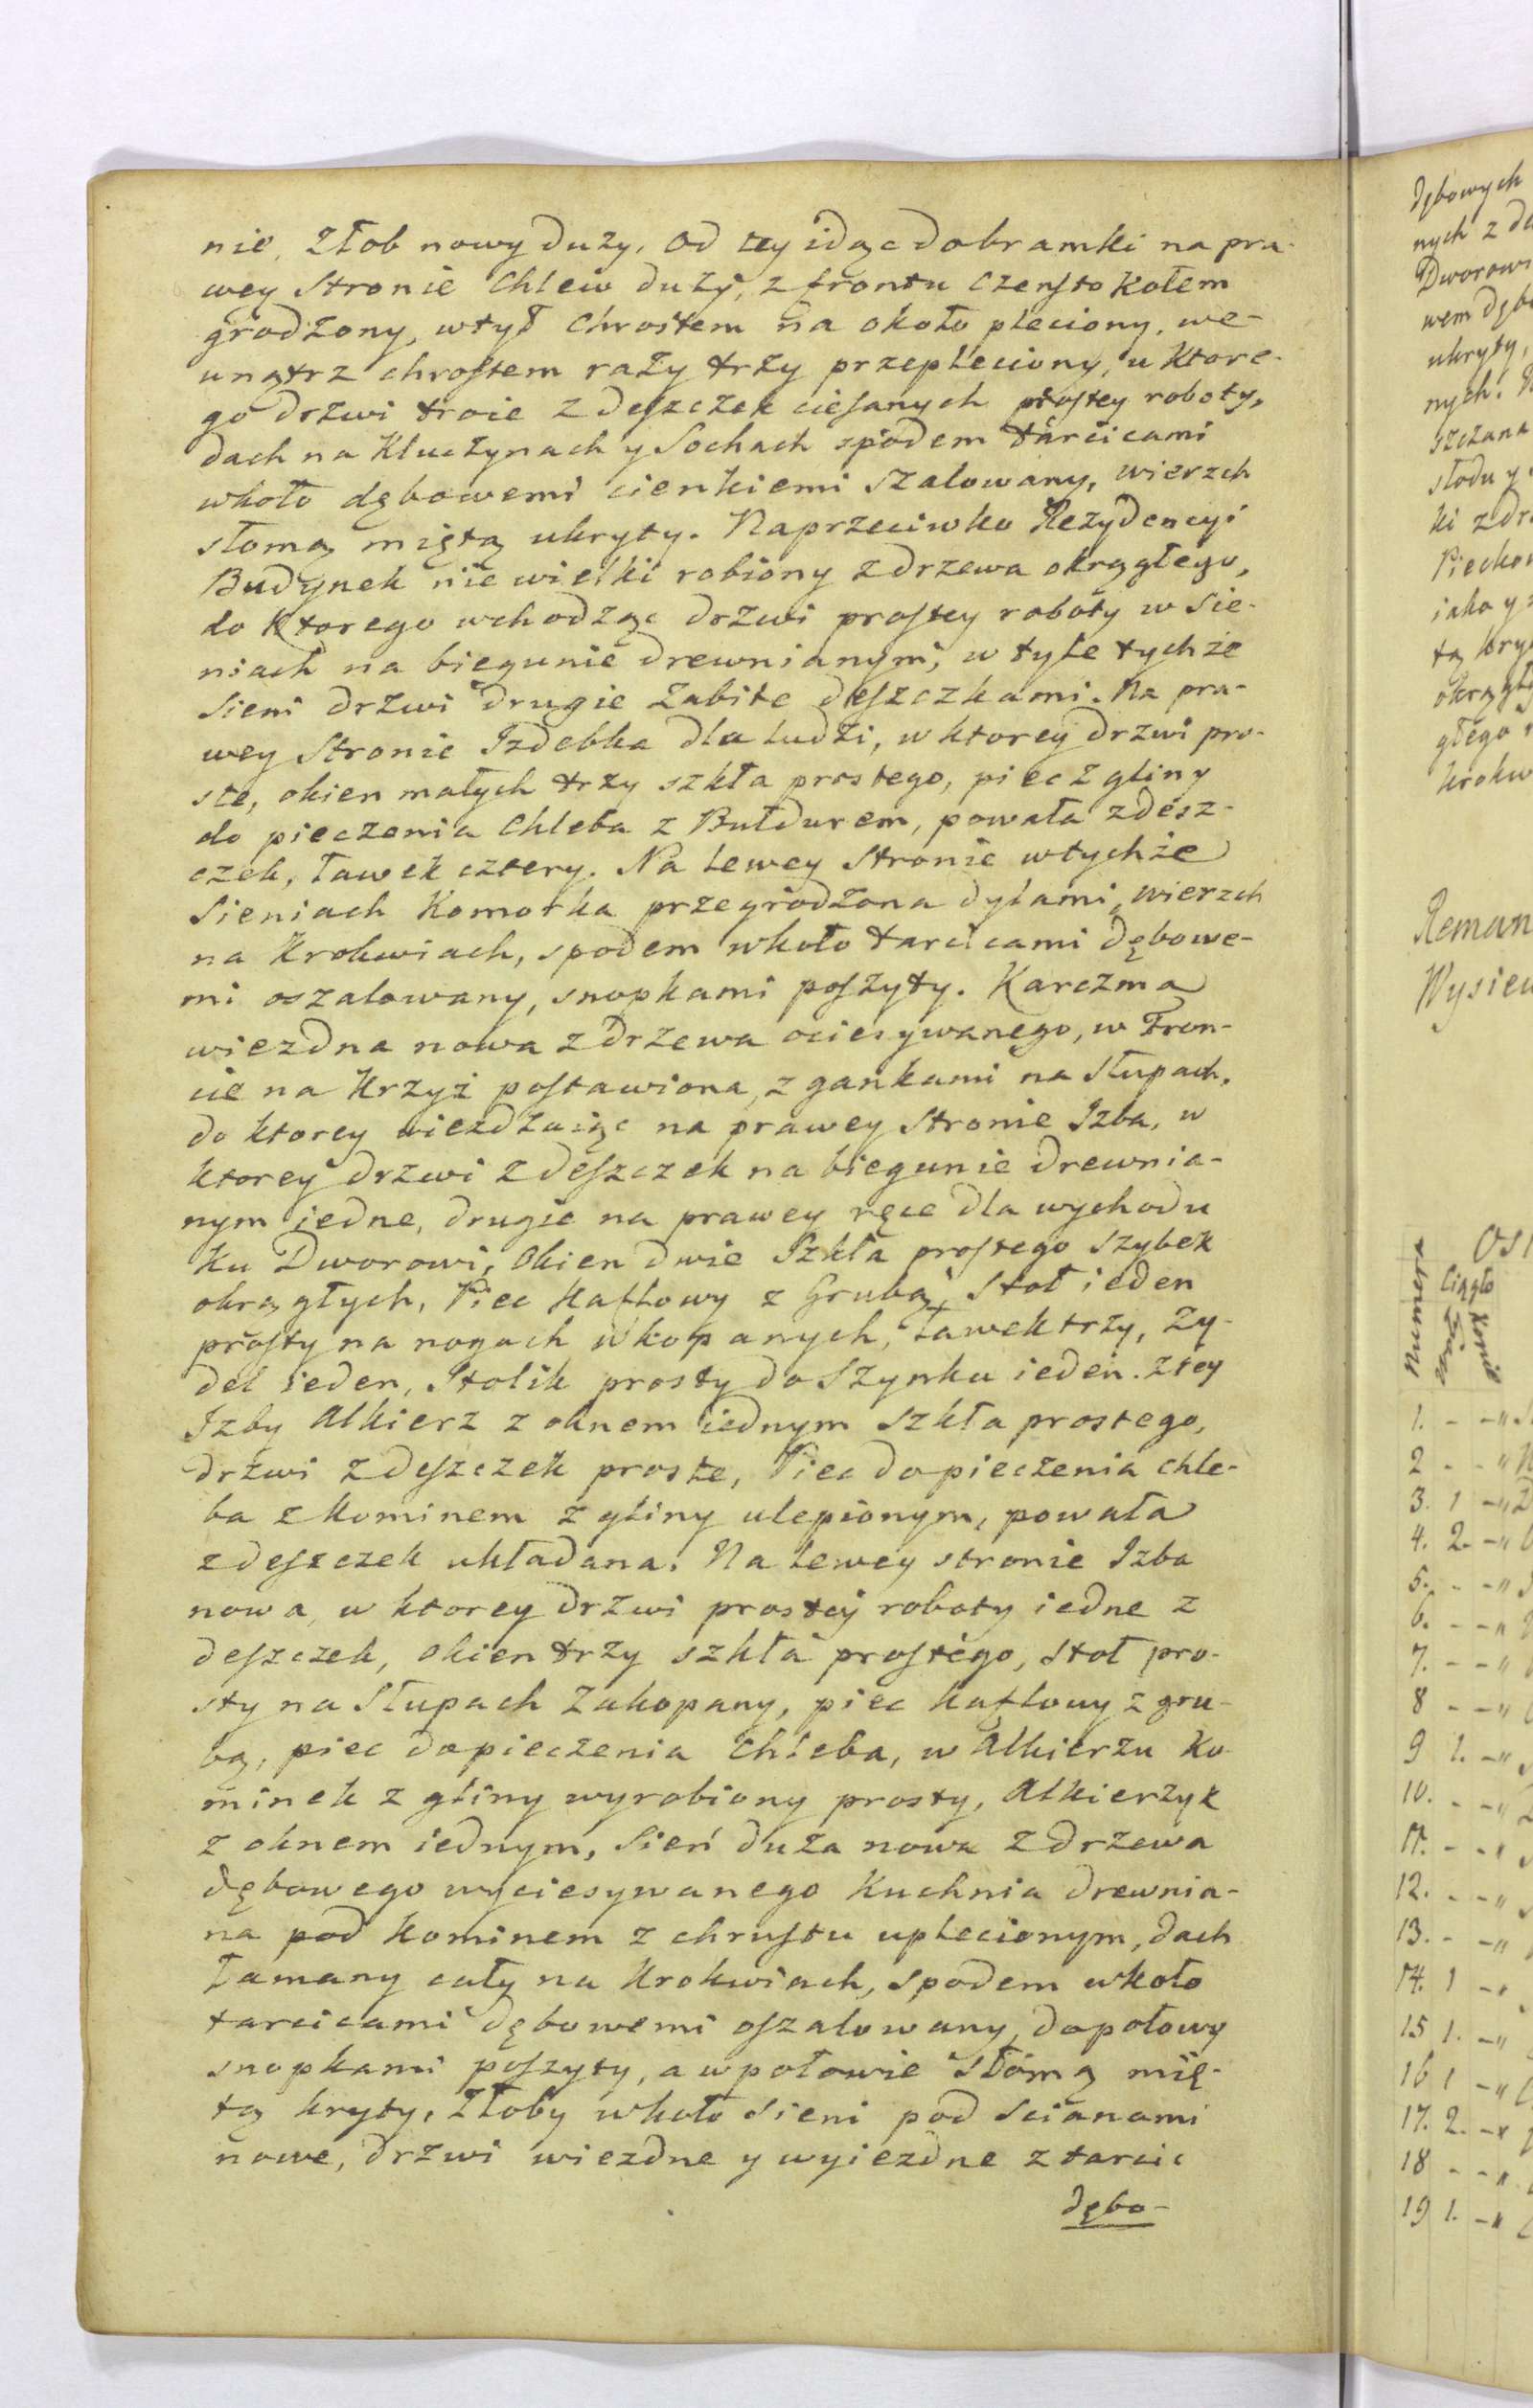 nie, Złob nowy duży, Od tey idąc do bramki na pra-
wey Stronie Chlew duży, z frontu Czenstokołem
grodzony, wtył Chrostem na około pleciony, we-
unątrz chrostem razy trzy przepleciony, u ktore-
go drzwi troie z deszczek ciesanych prostey roboty,
dach na Kluczynach y Sochach spodem tarcicami
wkoło dębowemi cienkiemi szalowany, wierzch
słomą miętą ukryty. Naprzeciwko Rezydencyi
Budynek niewielki robiony z drzewa okrągłego,
do ktorego wchodząc drzwi prostey roboty w Sie-
niach na biegunie drewnianym, w tyle tychże
Sieni drzwi drugie zabite deszczkami. Na pra-
wey Stronie Izdebka dla ludzi, w ktorey drzwi pro-
ste, okien małych trzy szkła prostego, piec z gliny
do pieczenia Chleba z Bułdurem, powała z desz-
czek, ławek cztery. Na lewey Stronie wtychże
Sieniach Komorka przegrodzona dylami, wierzch
na Krokwiach, spodem wkoło tarcicami dębowe-
mi oszalowany, snopkami poszyty. Karczma
wiezdna nowa z drzewa ociesywanego, w Fron-
cie na Krzyż postawiona, z gankami na Słupach,
do ktorey wiezdzaiąc na prawey Stronie Izba, w
ktorey drzwi z deszczek na biegunie drewnia-
nym iedne, drugie na prawey ręce dla wychodu
ku Dworowi, Okien dwie Szkła prostego Szybek
okrągłych, Piec Kaflowy z Grubą, Stoł ieden
prosty na nogach wkopanych, Ławek trzy, Zy-
del ieden, Stolik prosty do Szynku ieden. z tey
Izby Alkierz z oknem iednym szkła prostego,
drzwi z deszczek proste, Piec do pieczenia chle-
ba z Kominem z gliny ulepionym, powała
z deszczek układana. Na lewey stronie Izba
nowa, w ktorey drzwi prostey roboty iedne z
deszczek, okien trzy szkła prostego, stoł pro-
sty na Słupach zakopany, piec kaflowy z gru-
bą, piec do pieczenia Chleba, w Alkierzu Ko-
minek z gliny wyrobiony prosty, Alkierzyk
z oknem iednym, Sień duża nowa z drzewa
dębowego wyciesywanego Kuchnia drewnia-
na pod Kominem z chrustu uplecionym, dach
łamany cały na Krokwiach, spodem wkoło
tarcicami dębowemi oszalowany, do połowy
snopkami poszyty, a w połowie słomą mię-
tą kryty, Złoby wkoło Sieni pod Scianami
nowe, drzwi wiezdne y wyiezdne z tarcic
dębo-
dębowych
nych z
Dworow
wem dęb
ukryty,
nych.
szczana
słodu y
ki z dr
Piecko
iako y
tą kry
okrągł
głego
krokw
Reman
Wysiew
Numera
Ciągło
Konie
1.
2
3. 1
4. 2.
5.
6.
7.
8
9 1.
10.
11.
12.
13.
14. 1
15 1.
16 1
17. 2.
18
19 1.